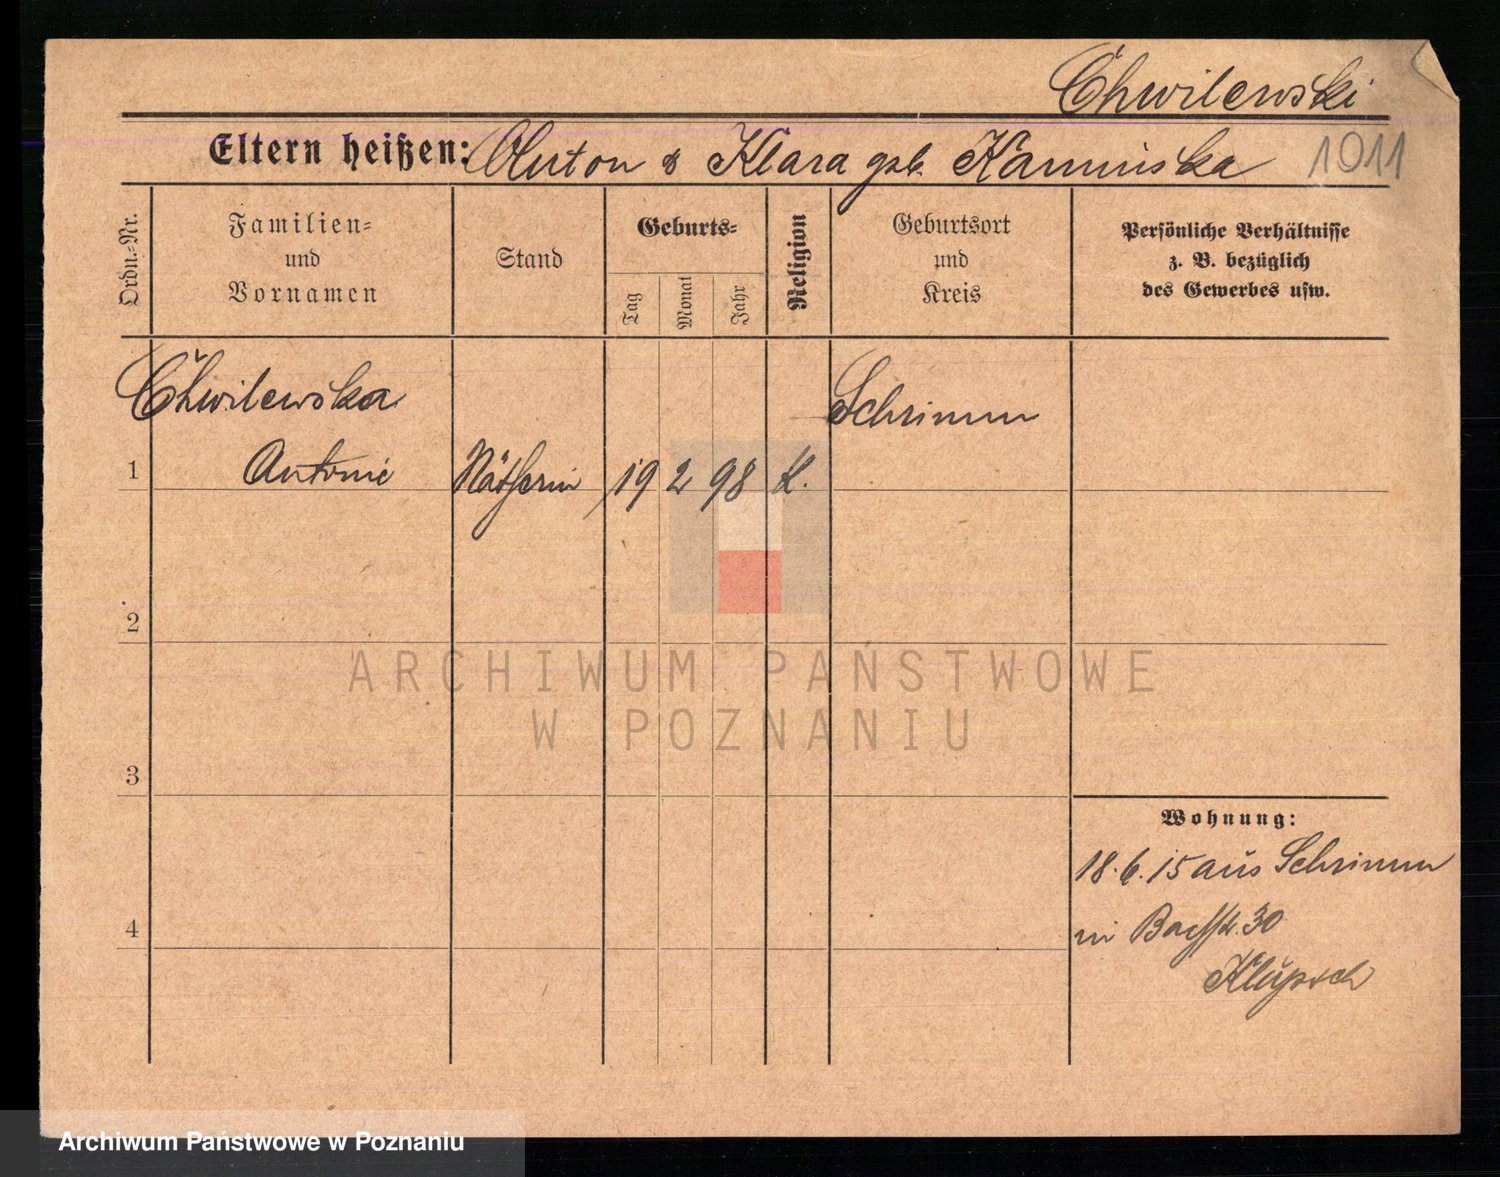 Chwilewski
Eltern heißen: Anton & Klara geb. Kaminska 1011
Ordn.-Nr.
Familien-
und
Vornamen
Stand
Geburts-
Tag
Monat
Jahr
Religion
Geburtsort
und
Kreis
Persönliche Verhältnisse
z. B. bezüglich
des Gewerbes usw.
Chwilewska Schrimm
1 Antonie Nätherin 19 2 98 K.
2
3
4
Wohnung:
18.6.15 aus Schrimm
in Bachstr. 30
Klupsch
ARCHIWUM PAŃSTWOWE
W POZNANIU
Archiwum Państwowe w Poznaniu